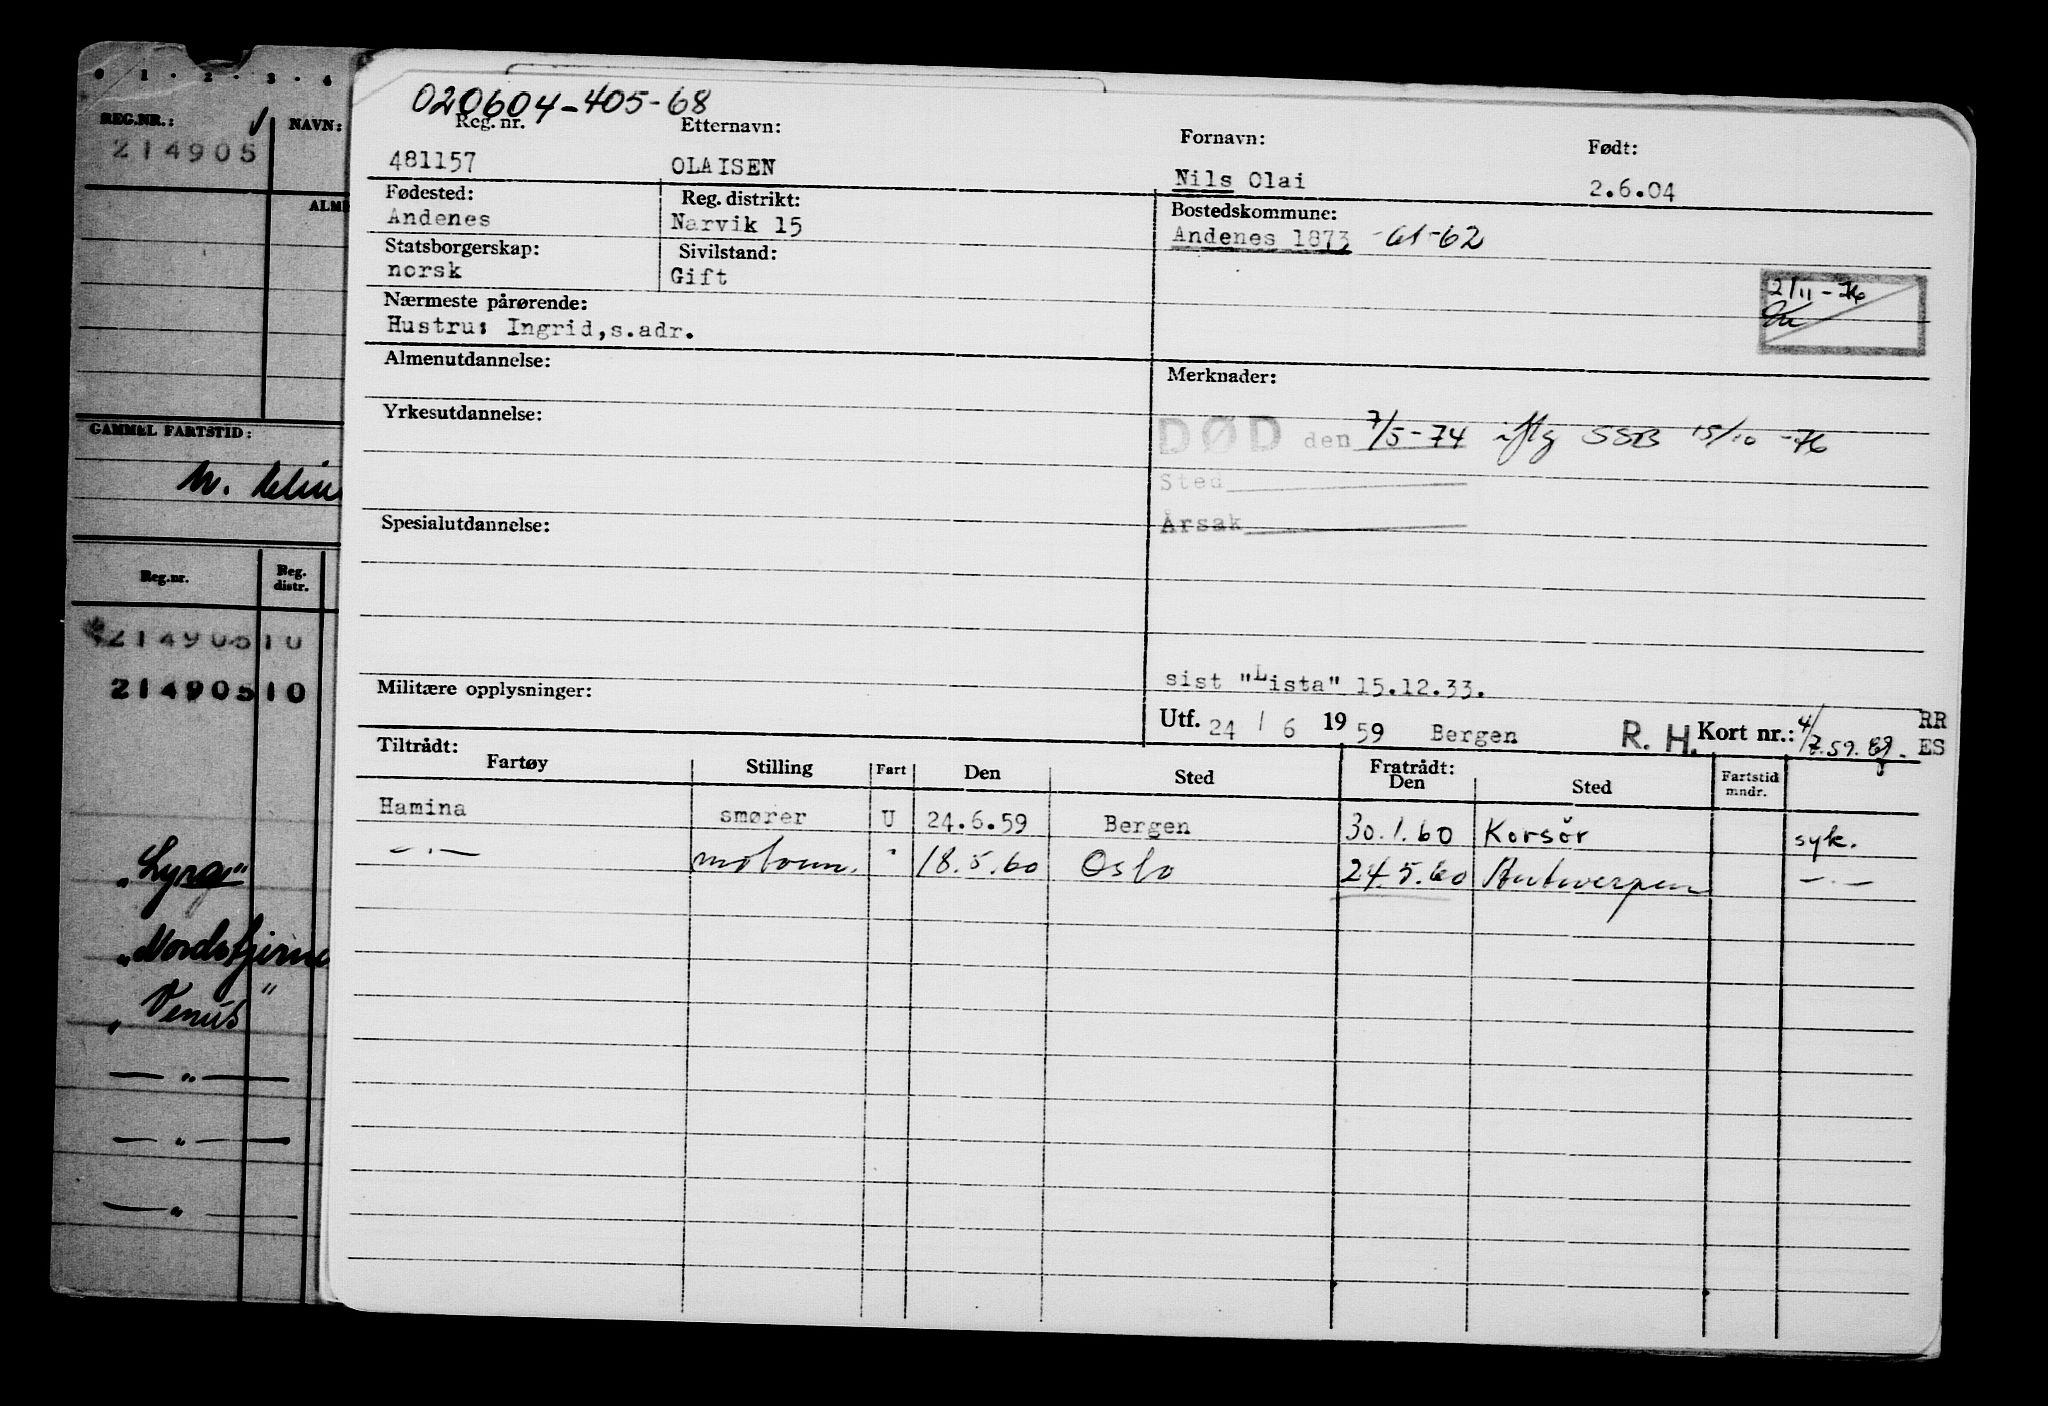 0 1 · 2 · 3 · 4
REG.NR.:
NAVN:
214905
ALME
GAMMEL FARTSTID:
Reg.nr.
Reg. distr.
214905 10
214905 10
„Lyra"
„Nordstjerne
„Venus"
— " —
— " —
— " —
020604-405-68
Reg. nr.
Etternavn:
Fornavn:
Født:
481157
OLAISEN
Nils Olai
2.6.04
Fødested:
Reg. distrikt:
Bostedskommune:
Andenes
Narvik 15
Andenes 1873 -61-62
Statsborgerskap:
Sivilstand:
norsk
Gift
2/11-76
Nærmeste pårørende:
Hustru: Ingrid,s.adr.
Almenutdannelse:
Merknader:
Yrkesutdannelse:
DØD den 7/5-74 iflg SSB 15/10-76
Sted
Årsak
Spesialutdannelse:
Militære opplysninger:
sist "Lista" 15.12.33.
Utf. 24 / 6 1959 Bergen R. H. Kort nr.: 4/7.59. RR ES
Tiltrådt:
Fartøy Stilling Fart Den Sted Fratrådt: Den Sted Fartstid mndr.
Hamina smører U 24.6.59 Bergen 30.1.60 Korsör syk.
— · — motorm. " 18.5.60 Oslo 24.5.60 Antwerpen — · —